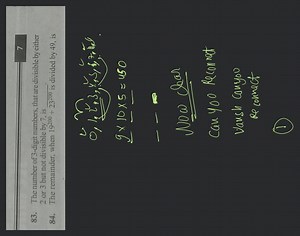 7
83. The number of 3-digit numbers, that are divisible by either
2 or 3 but not divisible by 7, is
84. The remainder, when 19²⁰⁰ + 23²⁰⁰ is divided by 49, is
9 × 10 × 5 = 450
Now clear
Can you Reconnect
Vansh can you
Reconnect
1